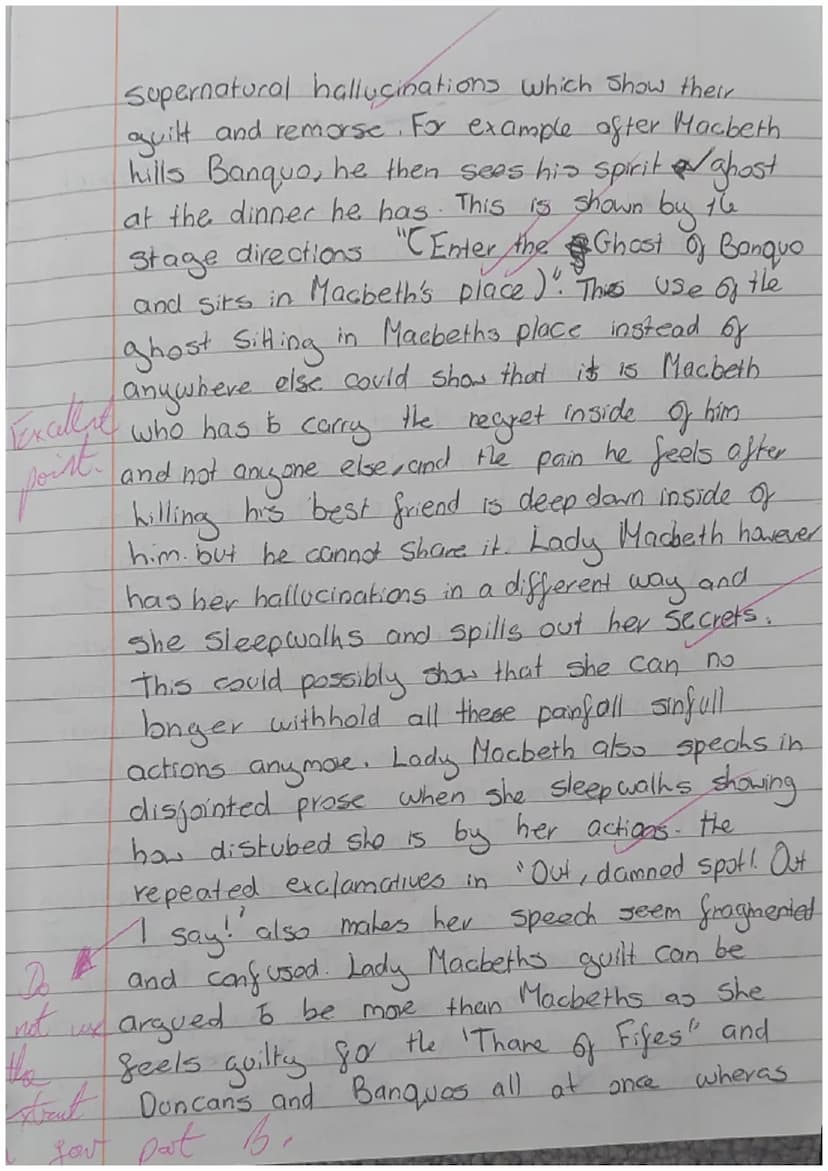 supernatural hallucinations which show their
guilt and remorse. For example after Macbeth
kills Banquo, he then sees his spirit / ghost
at the dinner he has. This is shown by the
stage directions "(Enter the Ghost of Banquo
and sits in Macbeth's place)". This use of the
ghost sitting in Macbeths place instead of
anywhere else could show that it is Macbeth
Excellent
who has to carry the regret inside of him
point.
and not anyone else, and the pain he feels after
killing his best friend is deep down inside of
him. but he cannot share it. Lady Macbeth however
has her hallucinations in a different way and
she sleepwalks and spills out her secrets.
This could possibly show that she can no
longer withhold all these painfull sinfull
actions anymore. Lady Macbeth also speaks in
disjointed prose when she sleepwalks showing
how distubed she is by her actions. The
repeated exclamatives in 'Out, damned spot! Out
I say!' also makes her speech seem fragmented
Do
and confused. Lady Macbeths guilt can be
not use
argued to be more than Macbeths as she
the
feels guilty for the 'Thane of Fifes" and
extract
Duncans and Banquos all at once wheras
for part B.